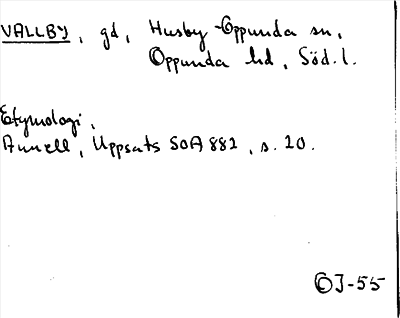 VALLBY, gd, Husby-Oppunda sn,
Oppunda hd, Söd. l.
Etymologi,
Annell, Uppsats SOA 882, s. 20.
OJ-55